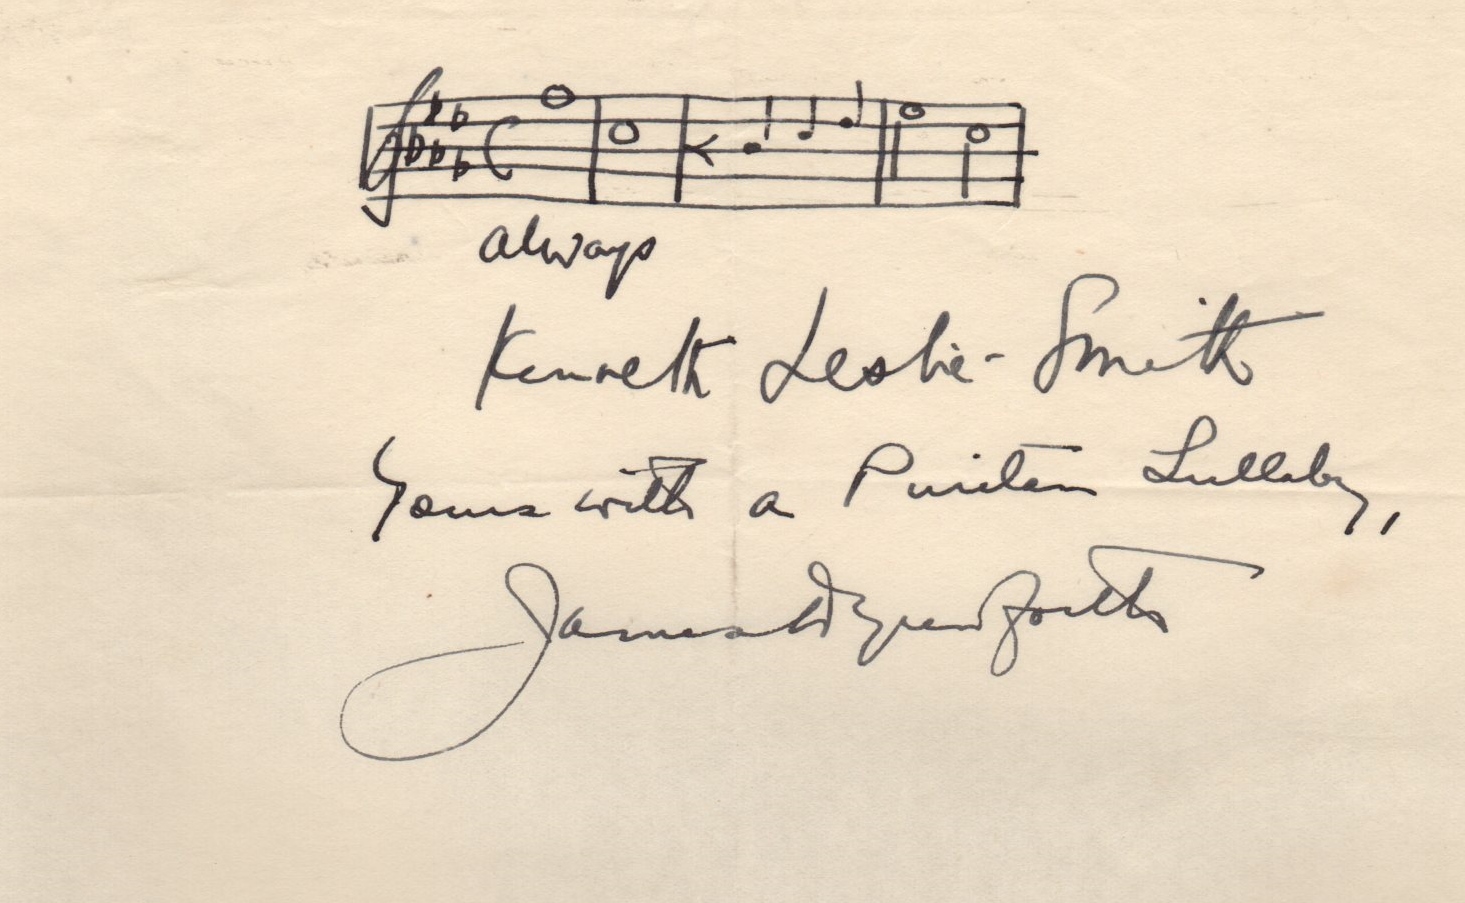 always
Kenneth Leslie-Smith
Yours with a Puritan Lullaby,
James Dyrenforth